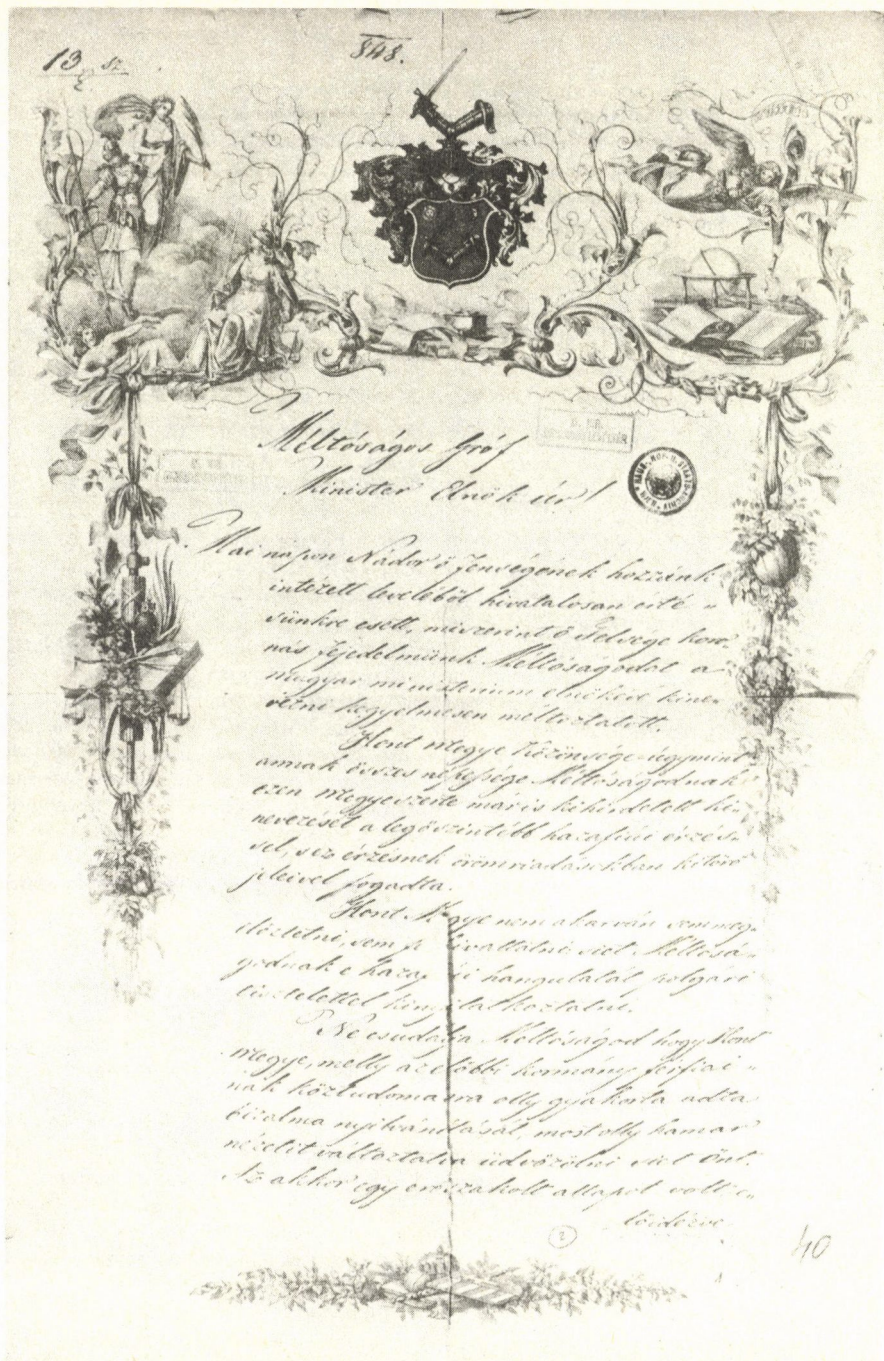 13 sz
848.
Méltóságos Gróf
Minister Elnök úr!
Mai napon Nádor ő fenségének hozzánk
intézett leveléből hivatalosan érté„
sünkre esett, miszerint ő Felsége koro„
nás fejedelmünk Méltóságodat a
magyar ministerium elnökévé kine„
vezni kegyelmesen méltóztatott.
Hont megye közönsége úgymint
annak összes népessége Méltóságodnak
ezen megyeszerte már is kihirdetett ki„
nevezését a legőszintébb hazafiúi érzés„
sel, s ez érzésnek örömriadásokban kitörő
jeleivel fogadta.
Hont Megye nem akarván sem meg„
előztetni, sem siet Méltósá„
godnak e hangulatát polgári
tisztelettel
Ne csudálja Méltóságod hogy Hont
megye, melly az előbbi kormány férfiai„
nak köztudomásra olly gyakorta adta
bizalma nyilvánítását, most olly hamar
nézetit változtatva üdvözölni siet Önt.
Az akkor egy erőszakolt állapot volt e„
lőidézve
2
40